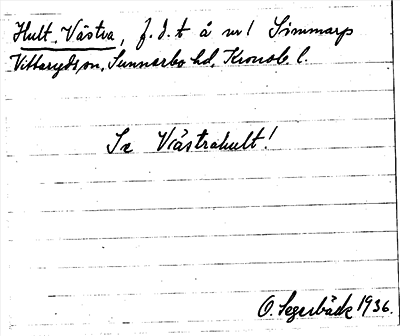 Hult, Västra, f.d. t å nr 1 Simmarp
Vittaryds sn, Sunnerbo hd, Kronob. l.
Se Västrahult!
O. Segerbäck 1936.